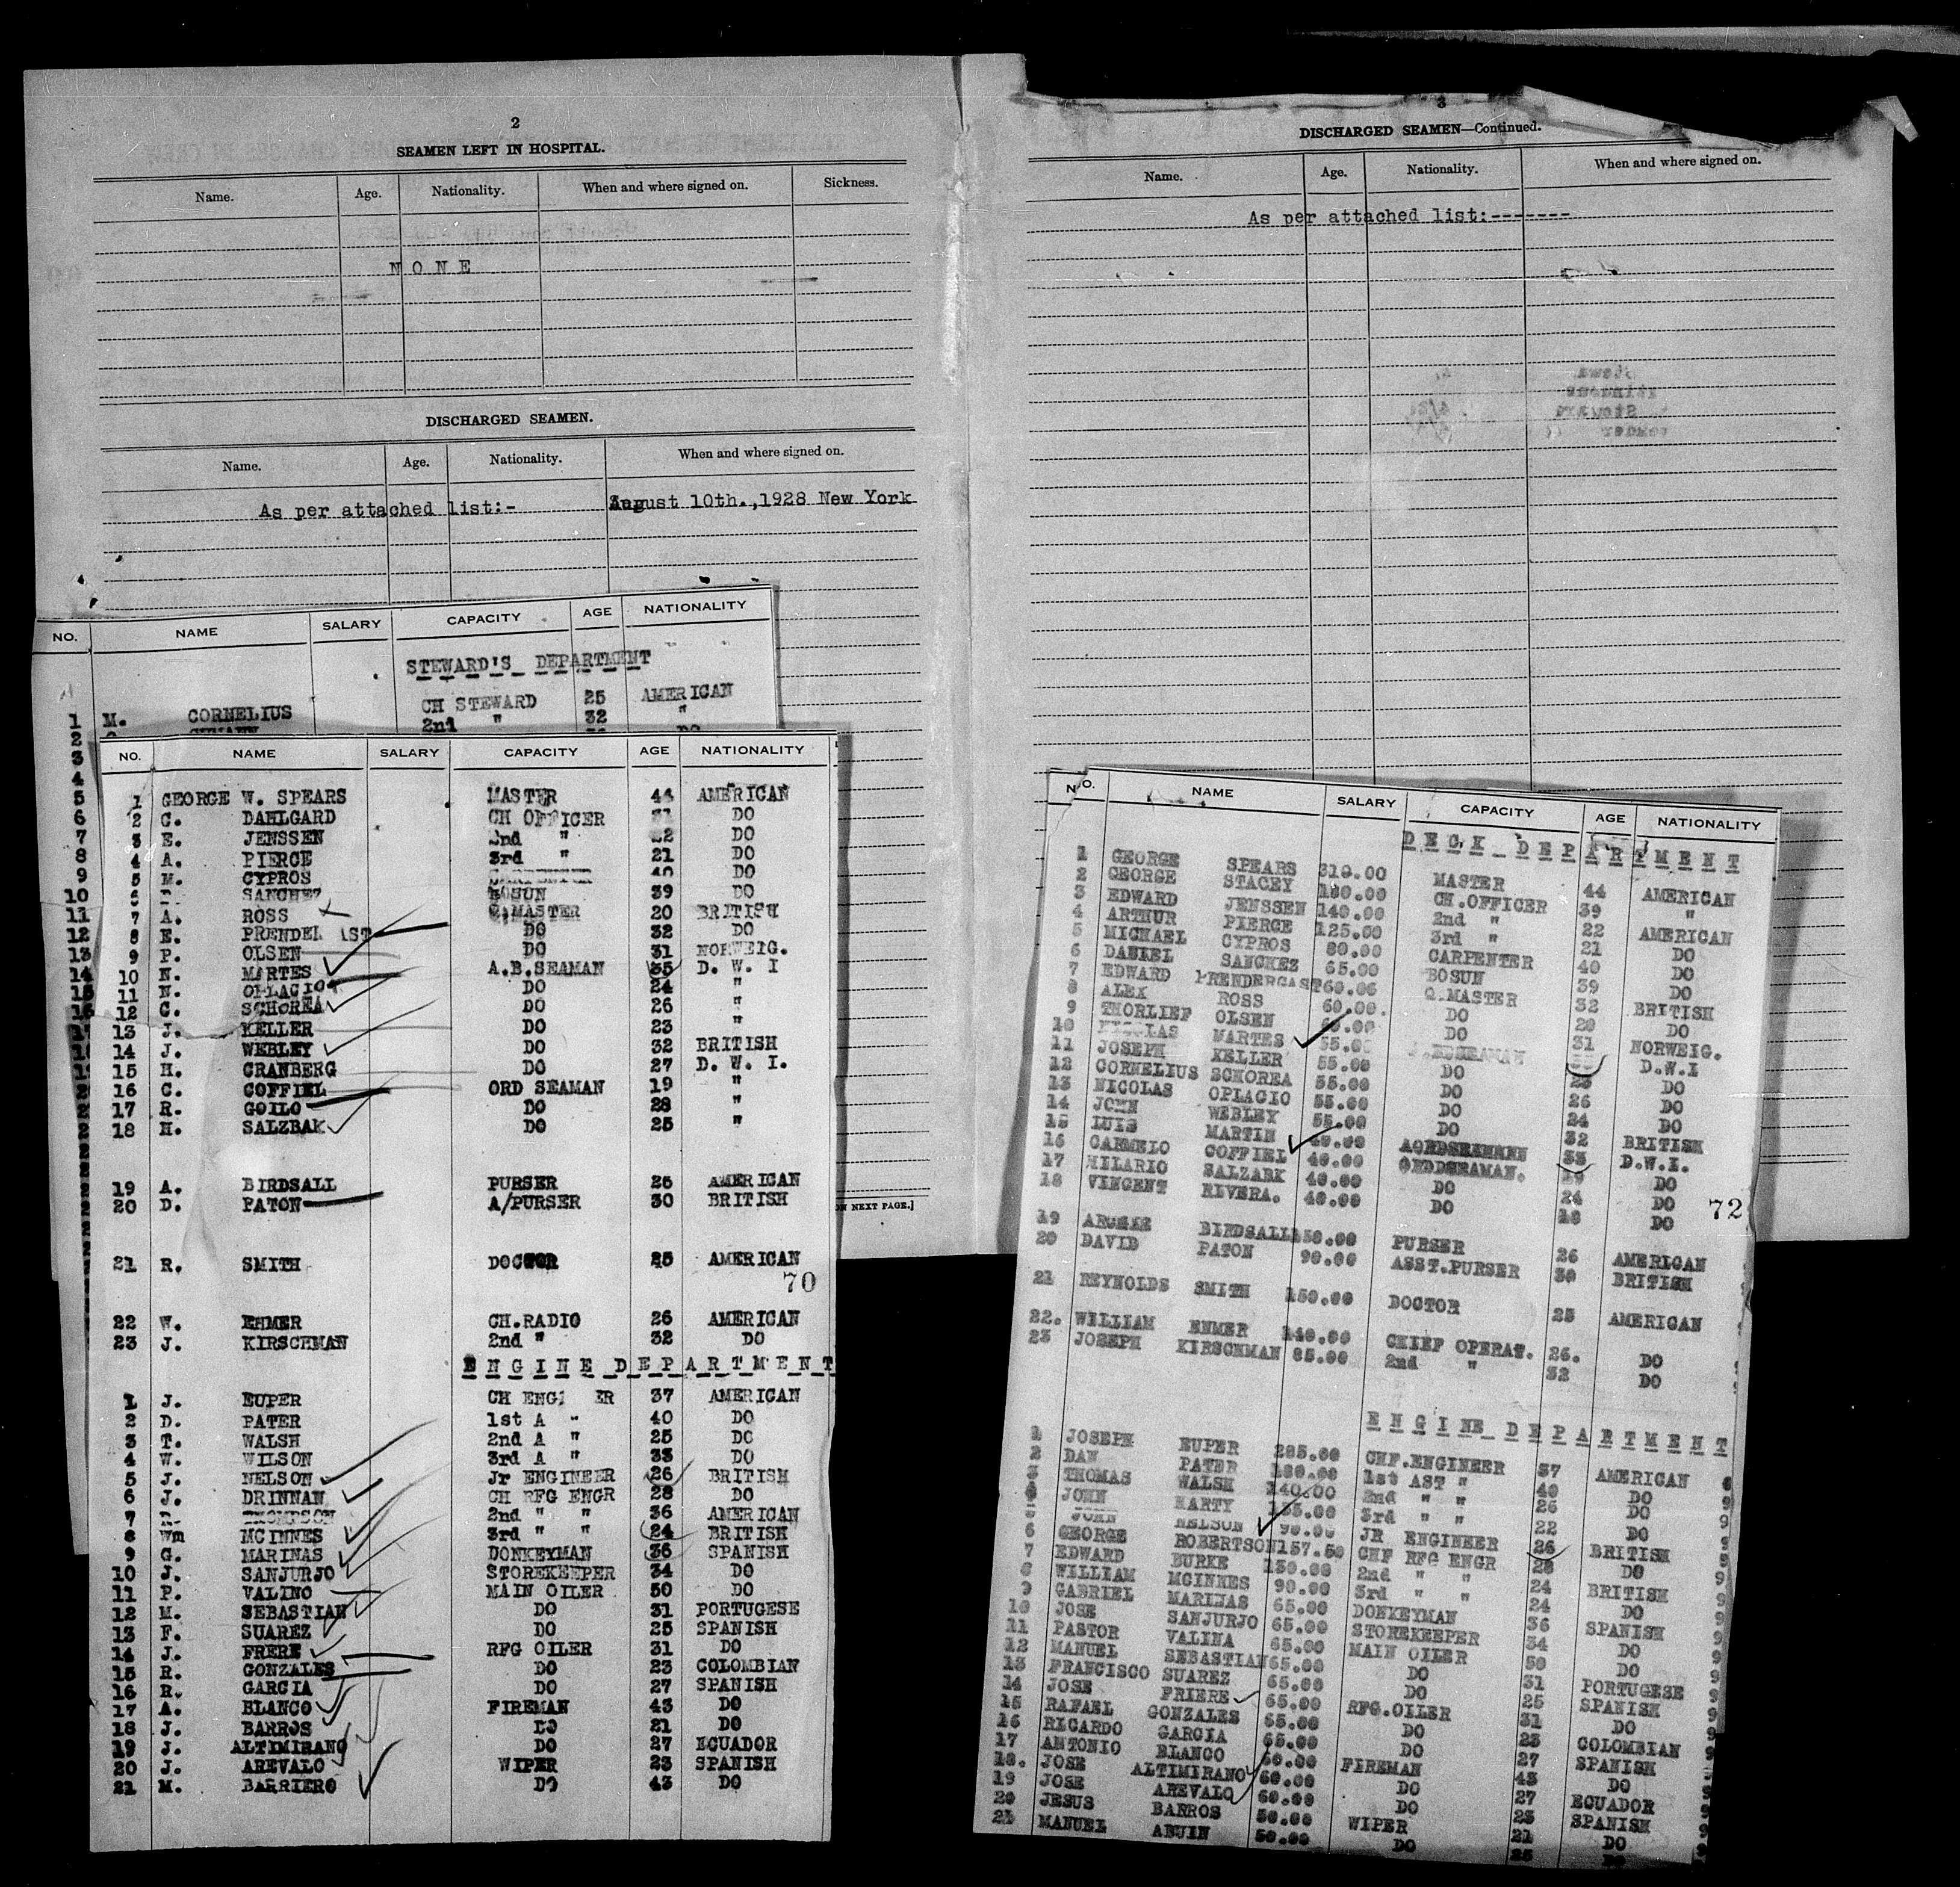 2
SEAMEN LEFT IN HOSPITAL.
Name. Age. Nationality. When and where signed on. Sickness.
NONE
DISCHARGED SEAMEN.
Name. Age. Nationality. When and where signed on.
As per attached list:- August 10th.,1928 New York
NO. NAME SALARY CAPACITY AGE NATIONALITY
STEWARD'S DEPARTMENT
1 M. CORNELIUS CH STEWARD 25 AMERICAN
2 2nd " 32 "
3 DO
4
5
6
7
8
9
10
11
12
13
14
15
16
NO. NAME SALARY CAPACITY AGE NATIONALITY
1 GEORGE W. SPEARS MASTER 44 AMERICAN
2 C. DAHLGARD CH OFFICER 31 DO
3 E. JENSSEN 2nd " 22 DO
4 A. PIERCE 3rd " 21 DO
5 M. CYPROS 40 DO
6 SANCHEZ BOSUN 39 DO
7 A. ROSS Q.MASTER 20 BRITISH
8 E. DO 32 DO
9 P. OLSEN DO 31 NORWEIG.
10 N. MARTES A.B.SEAMAN 35 D. W. I
11 N. OPLAGIO DO 24 "
12 C. SCHOREA DO 26 "
13 J. KELLER DO 23 "
14 J. WEBLEY DO 32 BRITISH
15 H. CRANBERG DO 27 D. W. I.
16 C. COFFIEL ORD SEAMAN 19 "
17 R. GOILO DO 28 "
18 H. SALZBAK DO 25 "
19 A. BIRDSALL PURSER 26 AMERICAN
20 D. PATON A/PURSER 30 BRITISH
21 R. SMITH DOCTOR 25 AMERICAN
70
22 W. EHMER CH.RADIO 26 AMERICAN
23 J. KIRSCHMAN 2nd " 32 DO
ENGINE DEPARTMENT
1 J. EUPER CH ENG ER 37 AMERICAN
2 D. PATER 1st A " 40 DO
3 T. WALSH 2nd A " 25 DO
4 W. WILSON 3rd A " 33 DO
5 J. NELSON Jr ENGINEER 26 BRITISH
6 J. DRINNAN CH RFG ENGR 28 DO
7 R. THOMPSON 2nd " " 36 AMERICAN
8 Wm MCINNES 3rd " " 24 BRITISH
9 G. MARINAS DONKEYMAN 36 SPANISH
10 J. SANJURJO STOREKEEPER 34 DO
11 P. VALINO MAIN OILER 50 DO
12 M. SEBASTIAN DO 31 PORTUGESE
13 F. SUAREZ DO 25 SPANISH
14 J. FRERE RFG OILER 31 DO
15 R. GONZALES DO 23 COLOMBIAN
16 R. GARCIA DO 27 SPANISH
17 A. BLANCO FIREMAN 43 DO
18 J. BARROS DO 21 DO
19 J. ALTIMIRANO DO 27 ECUADOR
20 J. AREVALO WIPER 23 SPANISH
21 M. BARRIERO DO 43 DO
ON NEXT PAGE.]
3
DISCHARGED SEAMEN—Continued.
Name. Age. Nationality. When and where signed on.
As per attached list:-------
NO. NAME SALARY CAPACITY AGE NATIONALITY
DECK DEPARTMENT
1 GEORGE SPEARS 310.00 MASTER 44 AMERICAN
2 GEORGE STACEY 180.00 CH.OFFICER 39 "
3 EDWARD JENSSEN 140.00 2nd " 22 AMERICAN
4 ARTHUR PIERCE 125.00 3rd " 21 DO
5 MICHAEL CYPROS 80.00 CARPENTER 40 DO
6 DANIEL SANCHEZ 65.00 BOSUN 39 DO
7 EDWARD PRENDERGAST 60.00 Q.MASTER 32 BRITISH
8 ALEX ROSS 60.00. DO 20 DO
9 THORLIEF OLSEN 60.00 DO 31 NORWEIG.
10 MARTES 55.00 D.W.I
11 JOSEPH KELLER 55.00 DO 23 DO
12 CORNELIUS SCHOREA 55.00 DO 26 DO
13 NICOLAS OPLAGIO 55.00 DO 24 DO
14 JOHN WEBLEY 55.00 DO 32 BRITISH
15 LUIS MARTIN 40.00 33 D.W.I.
16 CARMELO COFFIEL 40.00 19 DO
17 HILARIO SALZARK 40.00 DO 24 DO
18 VINCENT RIVERA. 40.00 DO 18 DO
72
19 BIRDSALL 150.00 PURSER 26 AMERICAN
20 DAVID PATON 90.00 ASST.PURSER 30 BRITISH
21 REYNOLDS SMITH 150.00 DOCTOR 25 AMERICAN
22. WILLIAM EHMER 140.00 CHIEF OPERAT. 26. DO
23 JOSEPH KIRSCHMAN 85.00 2nd " 32 DO
ENGINE DEPARTMENT
1 JOSEPH EUPER 285.00 CHF.ENGINEER 37 AMERICAN
2 DAN PATER 180.00 1st AST " 40 DO
3 THOMAS WALSH 140.00 2nd " " 26 DO
4 JOHN HARTY 3rd " " 22 DO
5 JOHN NELSON 90.00 JR ENGINEER 26 BRITISH
6 GEORGE ROBERTSON 157.50 CHF RFG ENGR 28 DO
7 EDWARD BURKE 130.00 2nd " " 24 BRITISH
8 WILLIAM MCINNES 90.00 3rd " " 24 DO
9 GABRIEL MARINAS 65.00 DONKEYMAN 36 SPANISH
10 JOSE SANJURJO 65.00 STOREKEEPER 34 DO
11 PASTOR VALINA 65.00 MAIN OILER 50 DO
12 MANUEL SEBASTIAN 65.00 DO 31 PORTUGESE
13 FRANCISCO SUAREZ 65.00 DO 25 SPANISH
14 JOSE FRIERE 65.00 RFG.OILER 31 DO
15 RAFAEL GONZALES 65.00 DO 23 COLOMBIAN
16 RICARDO GARCIA 65.00 DO 27 SPANISH
17 ANTONIO BLANCO 60.00 FIREMAN 43 DO
18. JOSE ALTIMIRANO 60.00 DO 27 ECUADOR
19 JOSE AREVALO 60.00 DO 23 SPANISH
20 JESUS BARROS 50.00 WIPER 21 DO
21 MANUEL ABUIN 50.00 DO 25 DO